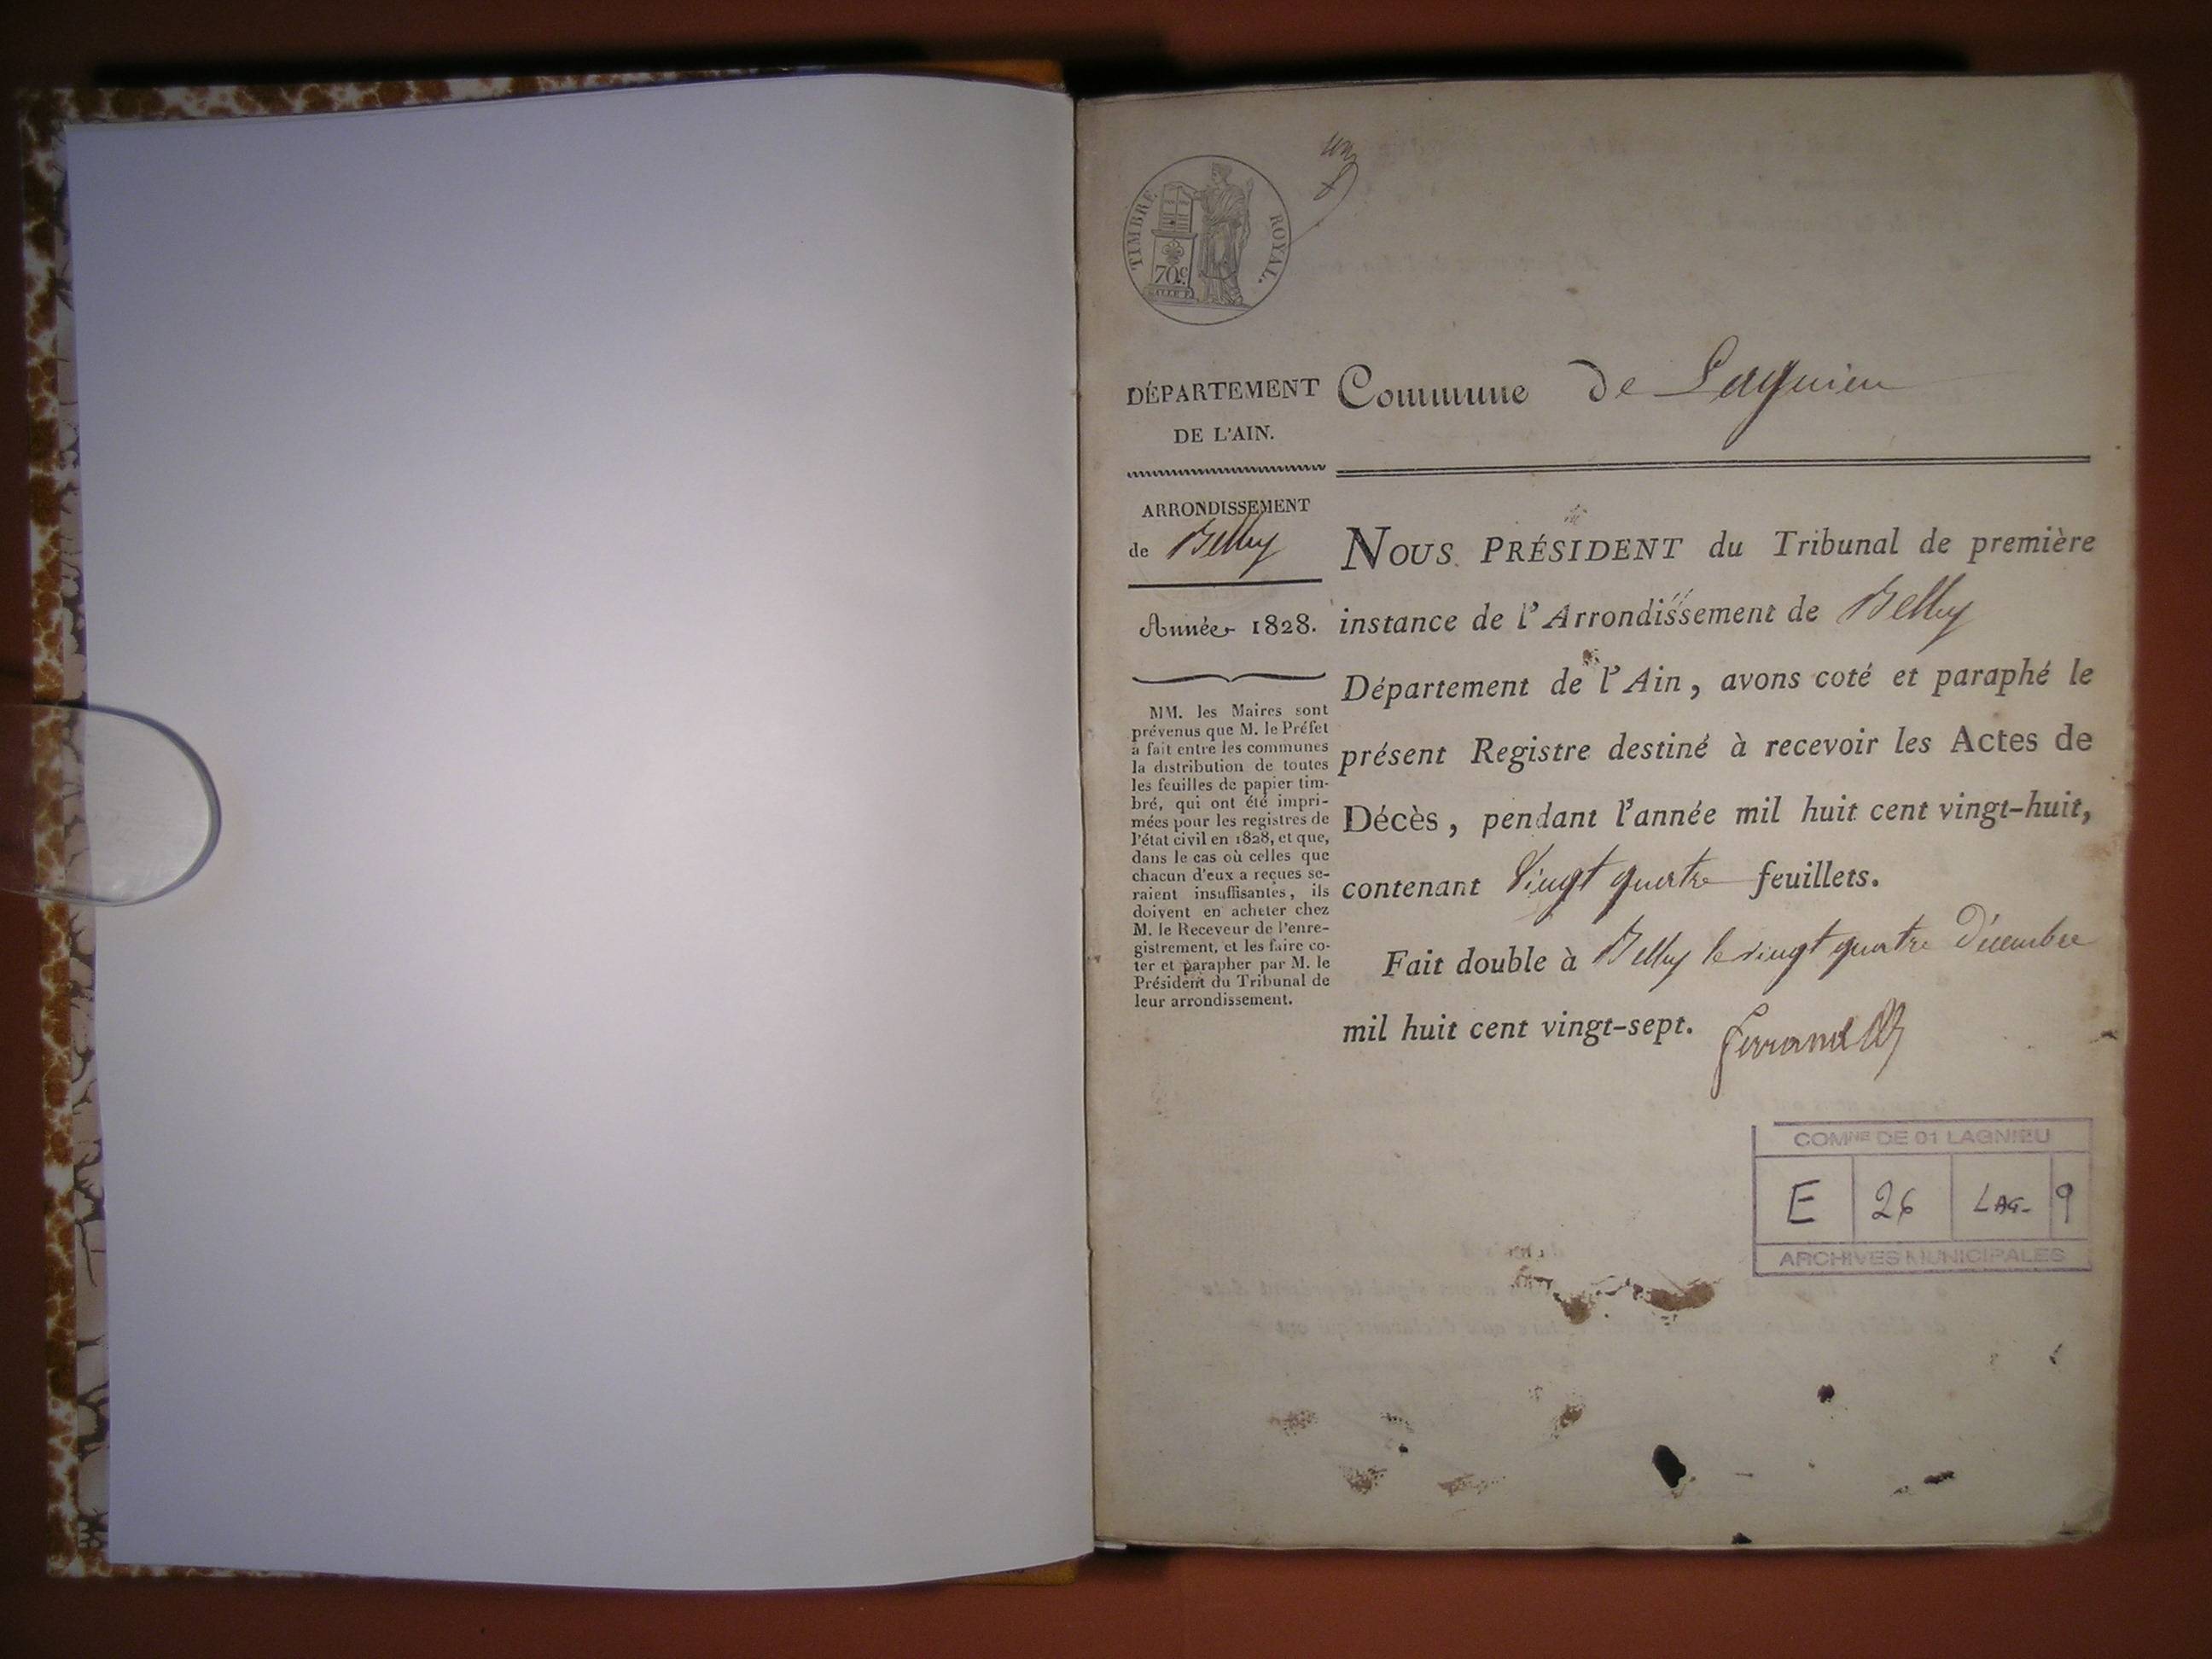 un
TIMBRE ROYAL.
70c
DÉPARTEMENT
DE L'AIN.
Commune de Lagnieu
ARRONDISSEMENT
de Belley
Année 1828.
MM. les Maires sont
prévenus que M. le Préfet
a fait entre les communes
la distribution de toutes
les feuilles de papier tim-
bré, qui ont été impri-
mées pour les registres de
l'état civil en 1828, et que,
dans le cas où celles que
chacun d'eux a reçues se-
raient insuffisantes, ils
doivent en acheter chez
M. le Receveur de l'enre-
gistrement, et les faire co-
ter et parapher par M. le
Président du Tribunal de
leur arrondissement.
NOUS PRÉSIDENT du Tribunal de première
instance de l'Arrondissement de Belley
Département de l'Ain, avons coté et paraphé le
présent Registre destiné à recevoir les Actes de
Décès, pendant l'année mil huit cent vingt-huit,
contenant Vingt quatre feuillets.
Fait double à Belley le vingt quatre Décembre
mil huit cent vingt-sept.
Ferrand
COMNE DE 01 LAGNIEU
E 26 LAG- 9
ARCHIVES MUNICIPALES